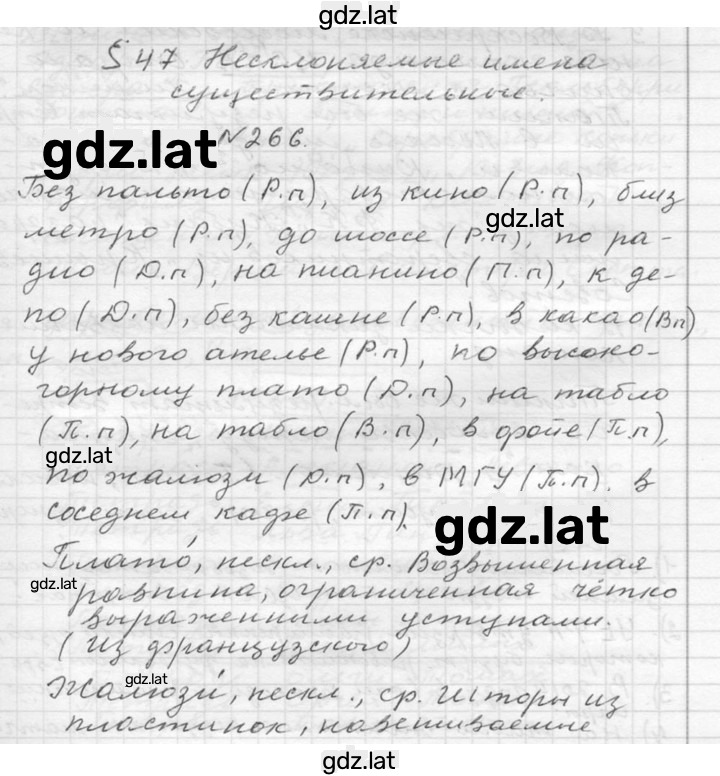 gdz.lat
§ 47 Несклоняемые имена
существительные.
gdz.lat
№266.
Без пальто (Р.п), из кино (Р.п), близ
gdz.lat
метро (Р.п), до шоссе (Р.п), по ра-
дио (Д.п), на пианино (П.п), к де-
по (Д.п), без кашне (Р.п), в какао (Вп)
у нового ателье (Р.п), по высоко-
горному плато (Д.п), на табло
(П.п), на табло (В.п), в фойе (П.п),
gdz.lat
по жалюзи (Д.п), в МГУ (П.п). в
соседнем кафе (П.п).
gdz.lat
Плато́, нескл., ср. Возвышенная
gdz.lat
равнина, ограниченная чётко
выраженными уступами.
(Из французского)
gdz.lat
Жалюзи́, нескл., ср. Шторы из
пластинок, навешиваемые
gdz.lat